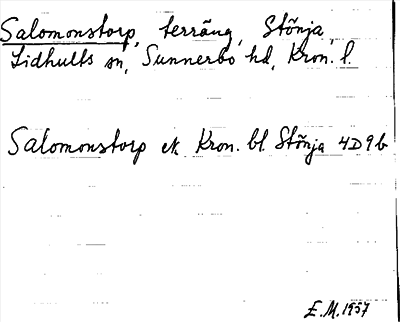 Salomonstorp, terräng, Stönja,
Lidhults sn, Sunnerbo hd, Kron. l.
Salomonstorp ek. Kron. bl. Stönja 4D9b
E.M. 1957